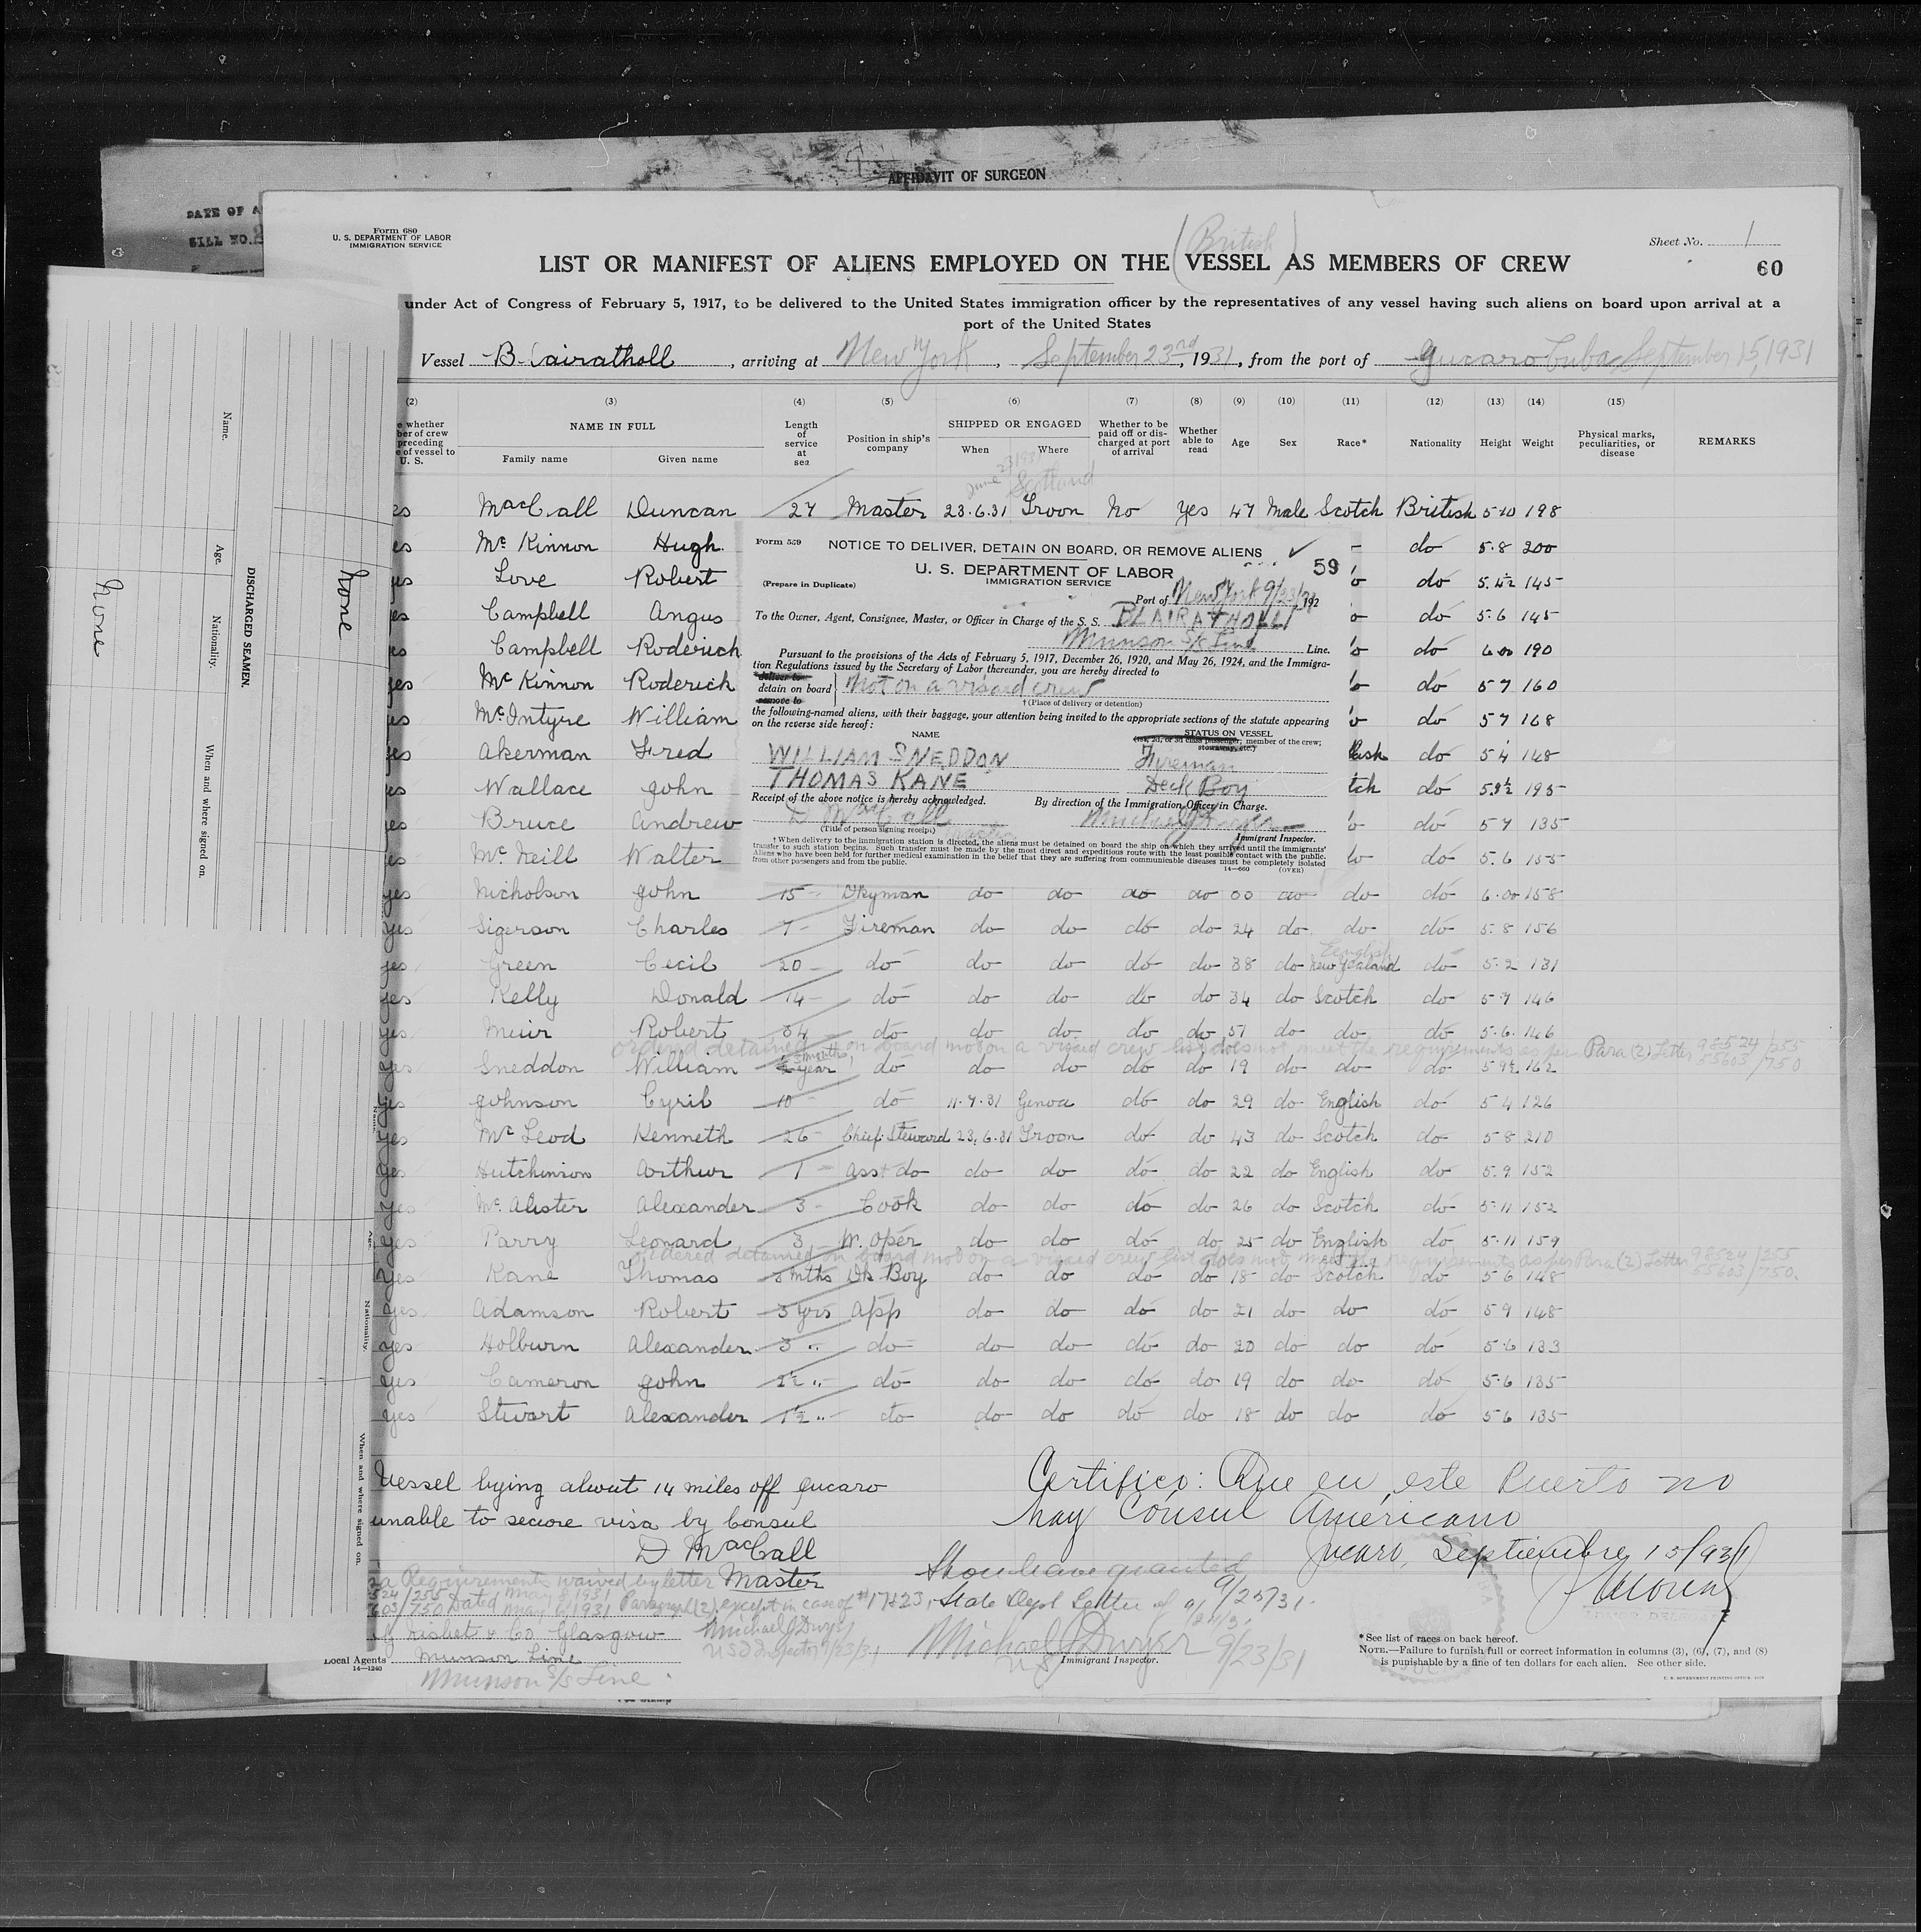 AFFIDAVIT OF SURGEON
DATE OF A
BILL NO.
Form 680
U. S. DEPARTMENT OF LABOR
IMMIGRATION SERVICE
(British)
Sheet No. 1
LIST OR MANIFEST OF ALIENS EMPLOYED ON THE VESSEL AS MEMBERS OF CREW
60
under Act of Congress of February 5, 1917, to be delivered to the United States immigration officer by the representatives of any vessel having such aliens on board upon arrival at a
port of the United States
Vessel Blairatholl, arriving at New York, September 23rd, 1931, from the port of Jucaro Cuba September 15, 1931
(2) (3) (4) (5) (6) (7) (8) (9) (10) (11) (12) (13) (14) (15)
e whether
ber of crew
preceding
e of vessel to
U. S.
NAME IN FULL
Family name Given name
Length of service at sea
Position in ship's company
SHIPPED OR ENGAGED
When Where
Whether to be paid off or discharged at port of arrival
Whether able to read
Age Sex Race* Nationality Height Weight
Physical marks, peculiarities, or disease
REMARKS
June 23 1931 Scotland
es MacCall Duncan 27 Master 23.6.31 Troon No Yes 47 Male Scotch British 5 10 198
es Mc Kinnon Hugh - do 5.8 200
yes Love Robert o do 5.4½ 145
yes Campbell Angus o do 5.6 145
es Campbell Roderich o do 6 00 190
yes Mc Kinnon Roderich o do 5 7 160
yes McIntyre William o do 5 7 168
yes Akerman Fred lish do 5 4 148
es Wallace John tch do 5.9½ 195
ye Bruce Andrew o do 5 7 135
yes Mc Neill Walter do do 5.6 155
Form 559 NOTICE TO DELIVER, DETAIN ON BOARD, OR REMOVE ALIENS ✓
59
U. S. DEPARTMENT OF LABOR
(Prepare in Duplicate) IMMIGRATION SERVICE
Port of New York 9/23/31, 192
To the Owner, Agent, Consignee, Master, or Officer in Charge of the S. S. BLAIRATHOLL
Munson S/S Line Line.
Pursuant to the provisions of the Acts of February 5, 1917, December 26, 1920, and May 26, 1924, and the Immigra-
tion Regulations issued by the Secretary of Labor thereunder, you are hereby directed to
deliver to
detain on board } Not on a visaed crew
remove to
†(Place of delivery or detention)
the following-named aliens, with their baggage, your attention being invited to the appropriate sections of the statute appearing
on the reverse side hereof:
NAME STATUS ON VESSEL
(1st, 2d, or 3d class passenger; member of the crew; stowaway, etc.)
WILLIAM SNEDDON Fireman
THOMAS KANE Deck Boy
Receipt of the above notice is hereby acknowledged. By direction of the Immigration Officer in Charge.
D MacCall Master Michael J Dwyer
(Title of person signing receipt) Immigrant Inspector.
†When delivery to the immigration station is directed, the aliens must be detained on board the ship on which they arrived until the immigrants'
transfer to such station begins. Such transfer must be made by the most direct and expeditious route with the least possible contact with the public.
Aliens who have been held for further medical examination in the belief that they are suffering from communicable diseases must be completely isolated
from other passengers and from the public.
14-660 (OVER)
yes Nicholson John 15 do do do do do do do 6.00 158
yes Sigerson Charles 7 Fireman do do do do 24 do do do 5.8 156
English
yes Green Cecil 20 do do do do do 38 do New Zealand do 5.2 131
yes Kelly Donald 14 do do do do do 34 do Scotch do 5.7 146
yes Muir Robert 34 do do do do do 51 do do do 5.6. 146
ordered detained on board not on a visaed crew list does not meet the requirements as per Para (2) Letter 98524/255 55603/750
yes Sneddon William 5 months ½ year do do do do do 19 do do do 5 9½ 162
yes Johnson Cyril 10 do 11.7.31 Genoa do do 29 do English do 5 4 126
yes Mc Leod Kenneth 26 Chief Steward 23.6.31 Troon do do 43 do Scotch do 5 8 210
yes Hutchinson Arthur 1 Asst do do do do do 22 do English do 5.9 152
yes Mc Alister Alexander 3 Cook do do do do 26 do Scotch do 5.11 152
yes Parry Leonard 3 W. Oper do do do do 25 do English do 5.11 159
ordered detained on board not on a visaed crew list does not meet the requirements as per Para (2) Letter 98524/255 55603/750.
yes Kane Thomas 3 mths Dk Boy do do do do 18 do Scotch do 5 6 148
yes Adamson Robert 3 yrs App do do do do 21 do do do 5 9 148
yes Holburn Alexander 3 " do do do do do 20 do do do 5.6 133
yes Cameron John 1½ " do do do do do 19 do do do 5.6 135
yes Stewart Alexander 1½ " do do do do do 18 do do do 5 6 135
Vessel lying about 14 miles off Jucaro
unable to secure visa by Consul
D MacCall
Master
Certifico: Que en este Puerto no
hay Consul Americano
Jucaro, Septiembre 15/931
Requirements waived by letter
524/255 Dated May 8 1931
603/750 Dated May 6 1931 Paragraph (2) except in case of #17 & 23,
Michael J Dwyer
US Inspector 9/23/31
Shore leave granted 9/25/31.
State Dept Letter of
Michael J Dwyer 9/23/31
U.S. Immigrant Inspector.
Nisbet & Co. Glasgow
Local Agents Munson Line
14-1240
Munson S/S Line
*See list of races on back hereof.
NOTE.—Failure to furnish full or correct information in columns (3), (6), (7), and (8)
is punishable by a fine of ten dollars for each alien. See other side.
U. S. GOVERNMENT PRINTING OFFICE
DISCHARGED SEAMEN.
Name. Age. Nationality. When and where signed on.
None
None
Name. Age. Nationality. When and where signed on.